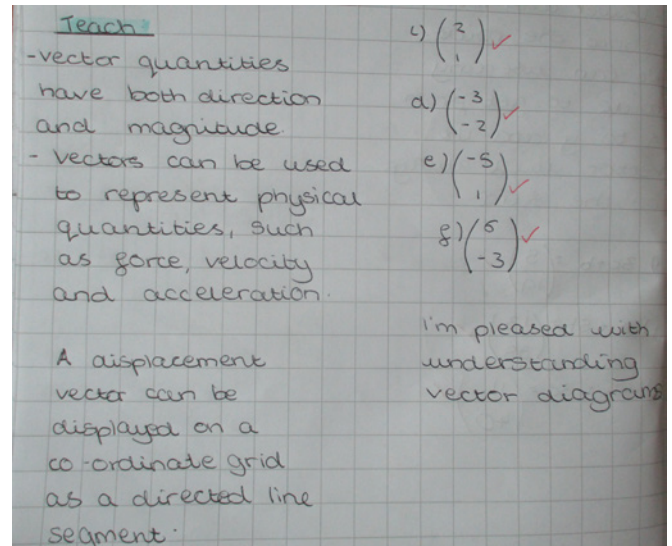 Teach
-vector quantities
have both direction
and magnitude.
- vectors can be used
to represent physical
quantities, such
as force, velocity
and acceleration.
A displacement
vector can be
displayed on a
co-ordinate grid
as a directed line
segment.
c) (2
1) ✓
d) (-3
-2) ✓
e) (-5
1) ✓
f) (5
-3) ✓
I'm pleased with
understanding
vector diagrams